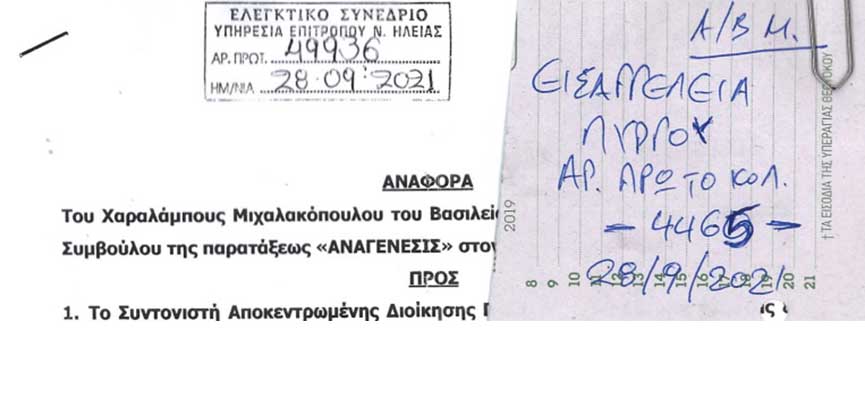 ΕΛΕΓΚΤΙΚΟ ΣΥΝΕΔΡΙΟ
ΥΠΗΡΕΣΙΑ ΕΠΙΤΡΟΠΟΥ Ν. ΗΛΕΙΑΣ
ΑΡ. ΠΡΩΤ. 49936
ΗΜ/ΝΙΑ 28·09·2021
ΑΝΑΦΟΡΑ
Του Χαραλάμπους Μιχαλακόπουλου του Βασιλεί
Συμβούλου της παρατάξεως «ΑΝΑΓΕΝΕΣΙΣ» στον
ΠΡΟΣ
1. Το Συντονιστή Αποκεντρωμένης Διοίκησης
Α/Β Μ.
ΕΙΣΑΓΓΕΛΕΙΑ
ΠΥΡΓΟΥ
ΑΡ. ΠΡΩΤΟΚΟΛ.
- 4465 -
28/9/2021
2019
8 9 10 11 12 13 14 15 16 17 18 19 20 21
†ΤΑ ΕΙΣΟΔΙΑ ΤΗΣ ΥΠΕΡΑΓΙΑΣ ΘΕΟΤΟΚΟΥ